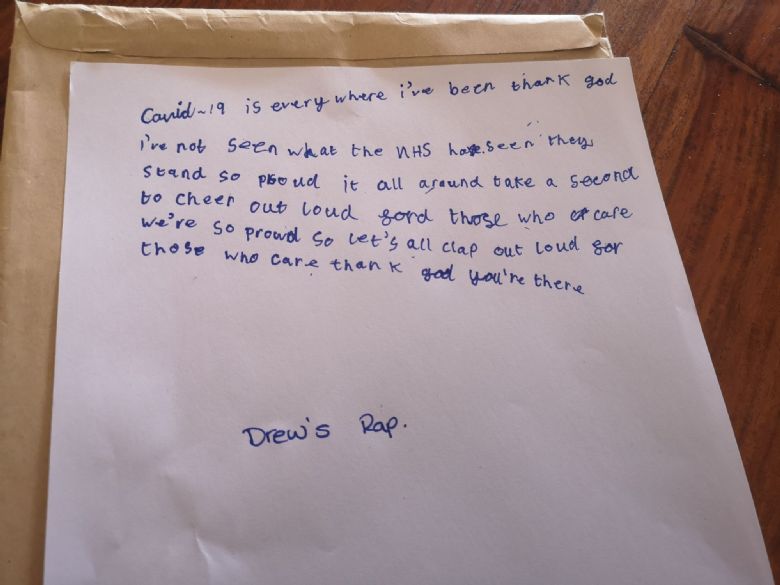 Covid-19 is everywhere i've been thank god
i've not seen what the NHS have seen they
stand so proud it all around take a second
to cheer out loud ford those who care
we're so proud so let's all clap out loud for
those who care thank god you're there
Drew's Rap.